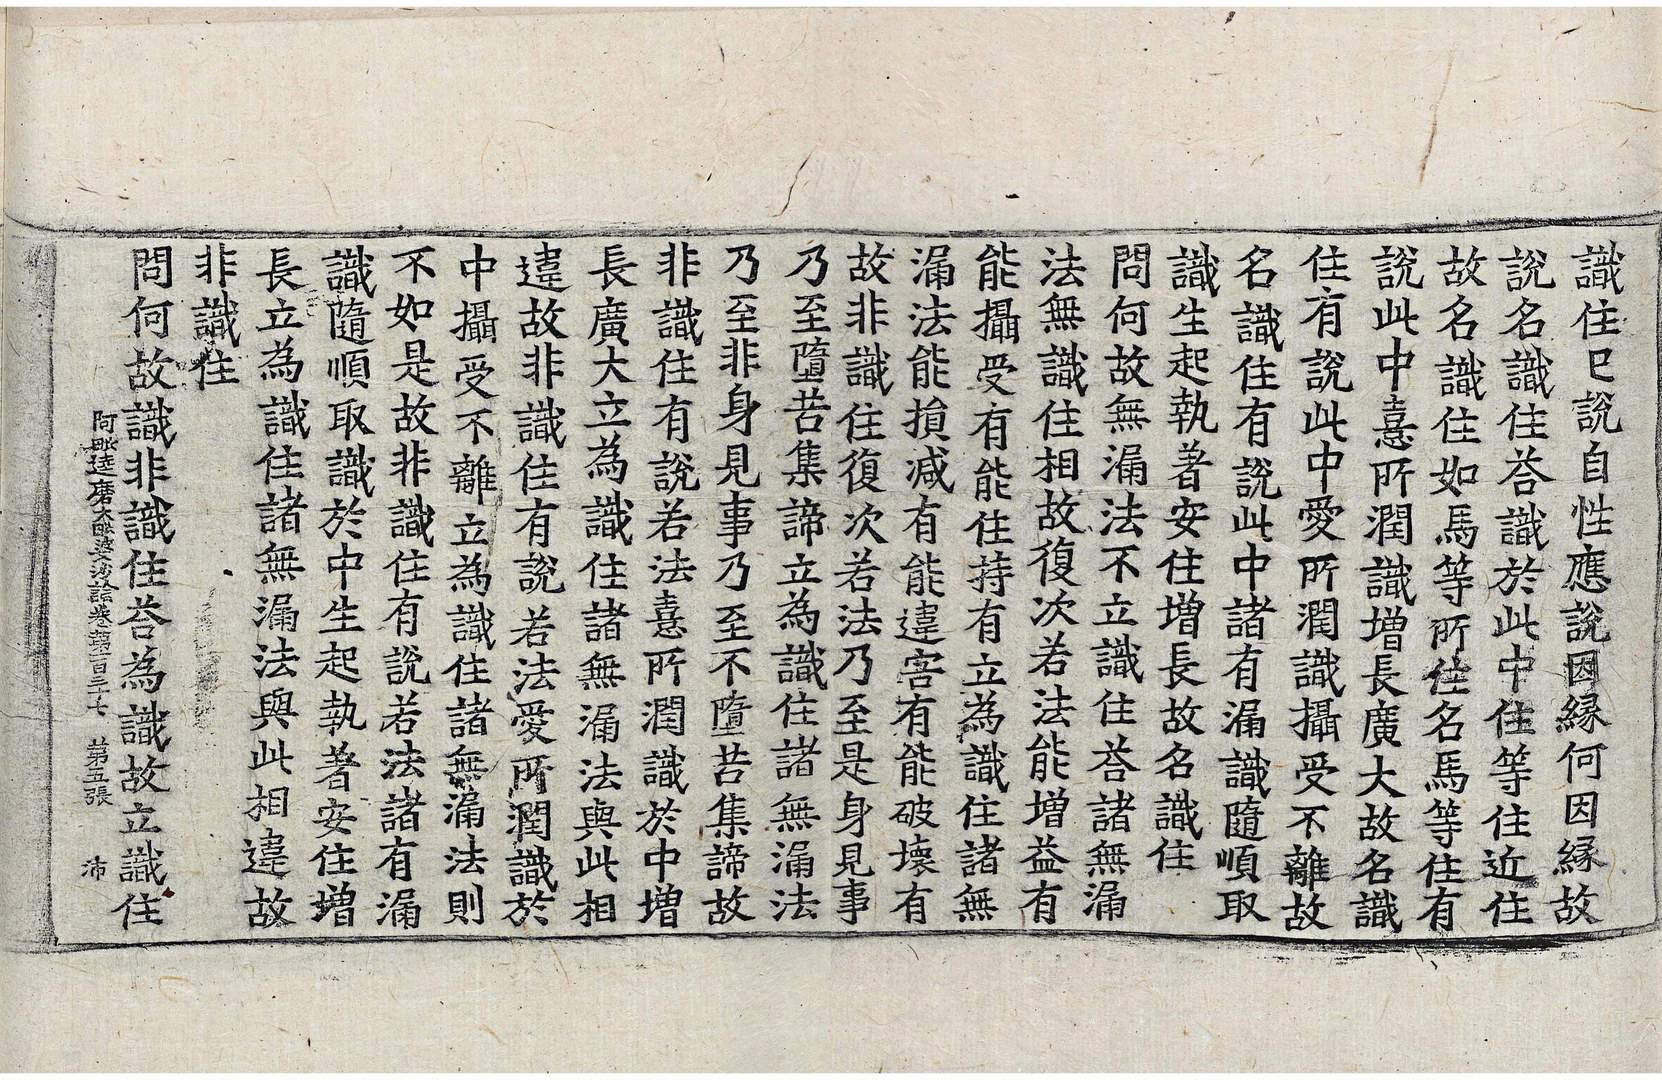 識住巳說自性應說因縁何因縁故
說名識住荅識於此中住等住近住
故名識住如馬等所住名馬等住有
說此中憙所潤識增長廣大故名識
住有說此中愛所潤識攝受不離故
名識住有說此中諸有漏識隨順取
識生起執著安住增長故名識住
問何故無漏法不立識住荅諸無漏
法無識住相故復次若法能增益有
能攝受有能住持有立為識住諸無
漏法能損減有能違害有能破壞有
故非識住復次若法乃至是身見事
乃至墮苦集諦立為識住諸無漏法
乃至非身見事乃至不墮苦集諦故
非識住有說若法憙所潤識於中增
長廣大立為識住諸無漏法與此相
違故非識住有說若法愛所潤識於
中攝受不離立為識住諸無漏法則
不如是故非識住有說若法諸有漏
識隨順取識於中生起執著安住增
長立為識住諸無漏法與此相違故
非識住
問何故識非識住荅為識故立識住
阿毗達磨大毗婆沙論卷第一百三十七 第五張 沛